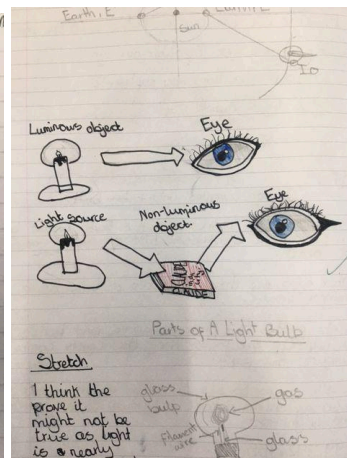 Earth, E
Sun
Io
Luminous object
Eye
Light source
Non-luminous
object.
Eye
Parts of A Light Bulb
Stretch
I think the
prove it
might not be
true as light
is a nearly
glass
bulp
gas
Filament
wire
glass